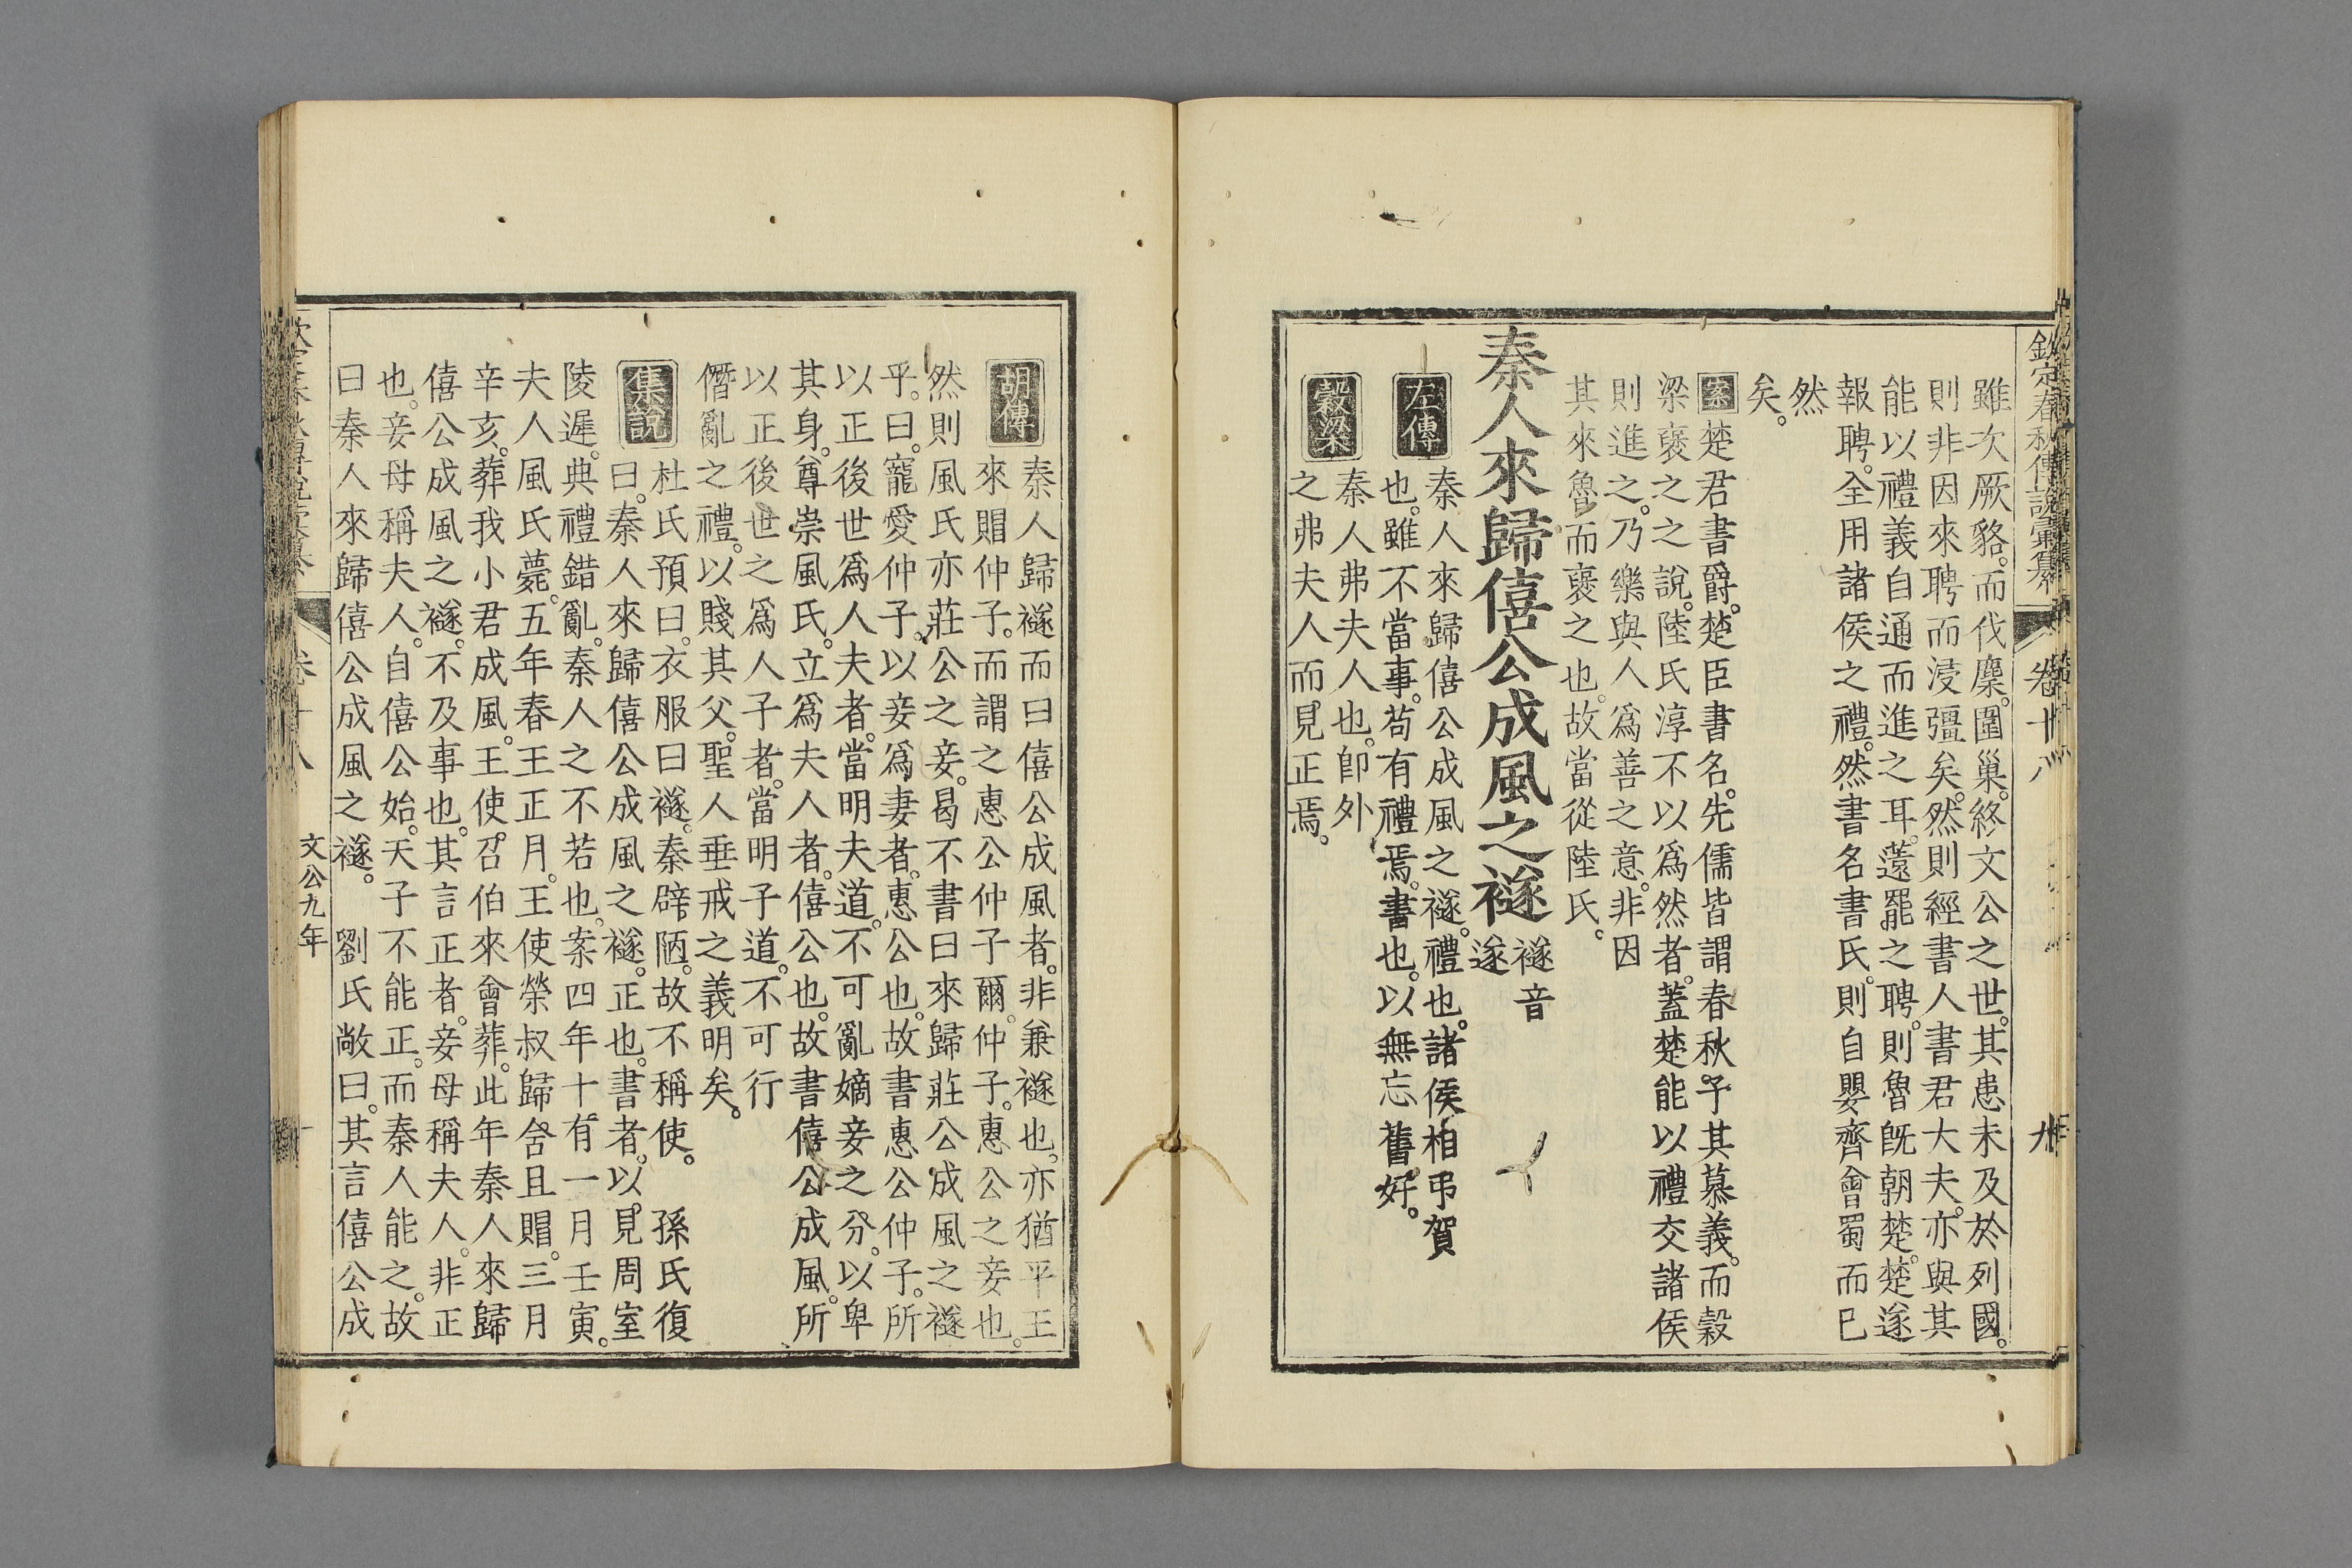 欽定春秋傳說彙纂 卷十八 九
雖次厥貉。而伐麇。圍巢。終文公之世。其患未及於列國。
則非因來聘而浸彊矣。然則經書人書君大夫。亦與其
能以禮義自通而進之耳。薳罷之聘。則魯旣朝楚。楚遂
報聘。全用諸侯之禮。然書名書氏。則自嬰齊會蜀而已
然
矣。
案楚君書爵。楚臣書名。先儒皆謂春秋予其慕義。而穀
梁褒之之說。陸氏淳不以爲然者。蓋楚能以禮交諸侯
則進之。乃樂與人爲善之意。非因
其來魯而褒之也。故當從陸氏。
秦人來歸僖公成風之襚
襚音
遂
左傳
秦人來歸僖公成風之襚。禮也。諸侯相弔賀
也。雖不當事。苟有禮焉。書也。以無忘舊好。
穀梁
秦人弗夫人也。卽外
之弗夫人而見正焉。
胡傳
秦人歸襚而曰僖公成風者。非兼襚也。亦猶平王
來賵仲子。而謂之惠公仲子爾。仲子。惠公之妾也。
然則風氏亦莊公之妾。曷不書曰來歸莊公成風之襚
乎。曰。寵愛仲子。以妾爲妻者。惠公也。故書惠公仲子。所
以正後世爲人夫者。當明夫道。不可亂嫡妾之分。以卑
其身。尊崇風氏。立爲夫人者。僖公也。故書僖公成風。所
以正後世之爲人子者。當明子道。不可行
僭亂之禮。以賤其父。聖人垂戒之義明矣。
集說
杜氏預曰。衣服曰襚。秦辟陋。故不稱使。 孫氏復
曰。秦人來歸僖公成風之襚。正也。書者。以見周室
陵遲。典禮錯亂。秦人之不若也。案四年十有一月壬寅。
夫人風氏薨。五年春王正月。王使榮叔歸含且賵。三月
辛亥。葬我小君成風。王使召伯來會葬。此年秦人來歸
僖公成風之襚。不及事也。其言正者。妾母稱夫人。非正
也。妾母稱夫人。自僖公始。天子不能正。而秦人能之。故
曰秦人來歸僖公成風之襚。 劉氏敞曰。其言僖公成
卷十八 文公九年